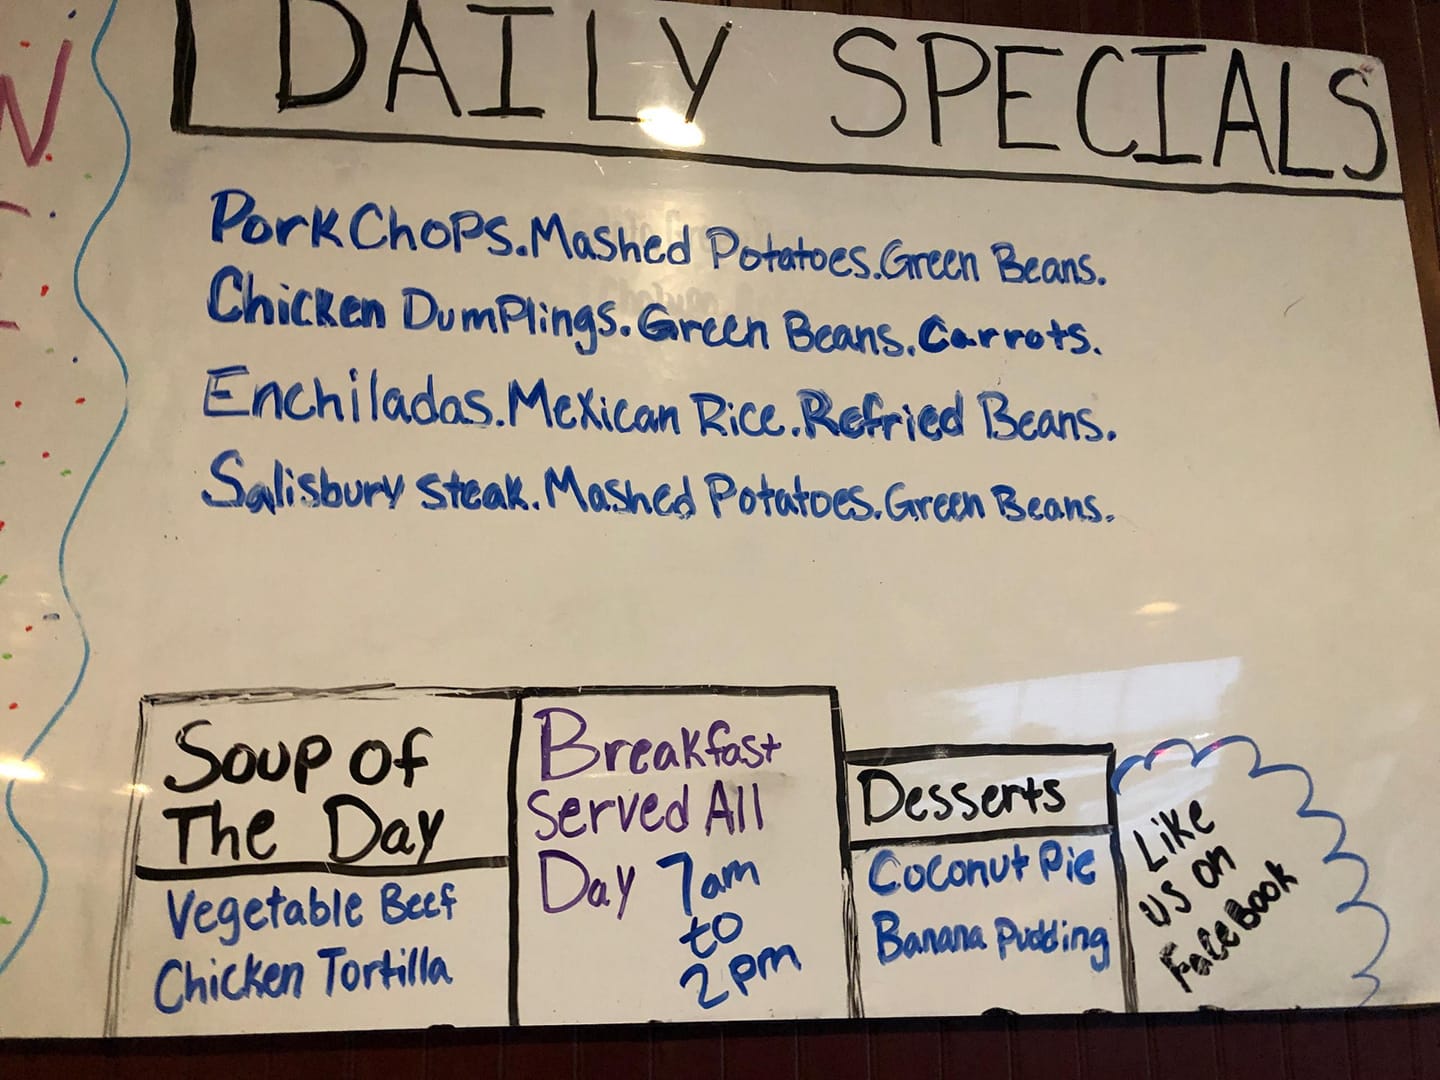 N
DAILY SPECIALS
Pork Chops. Mashed Potatoes. Green Beans.
Chicken Dumplings. Green Beans. Carrots.
Enchiladas. Mexican Rice. Refried Beans.
Salisbury Steak. Mashed Potatoes. Green Beans.
Soup of
The Day
Vegetable Beef
Chicken Tortilla
Breakfast
Served All
Day 7am
to
2pm
Desserts
Coconut Pie
Banana Pudding
Like
us on
FaceBook